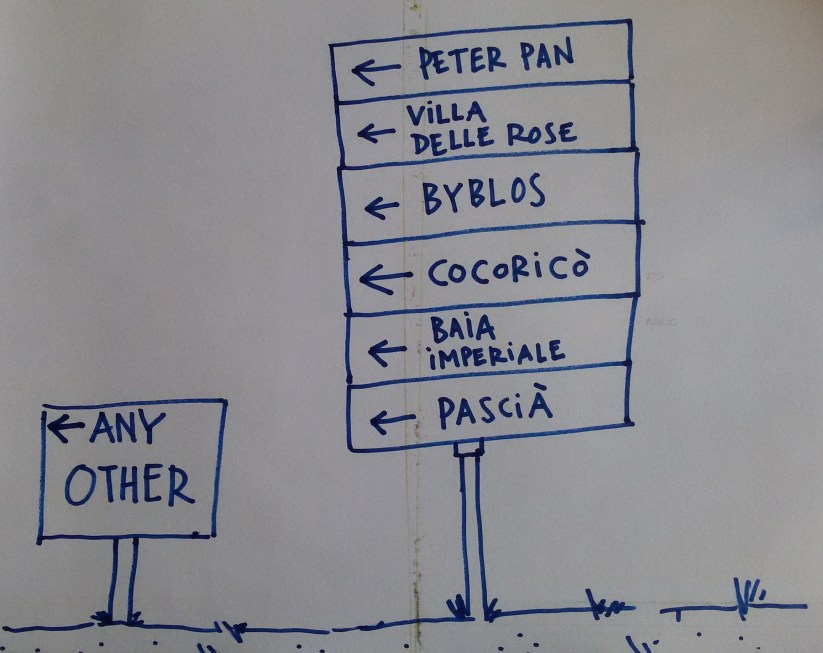 ← PETER PAN
← ViLLA
DELLE ROSE
← BYBLOS
← COCORiCÒ
← BAiA
iMPERiALE
← PASCiÀ
← ANY
OTHER